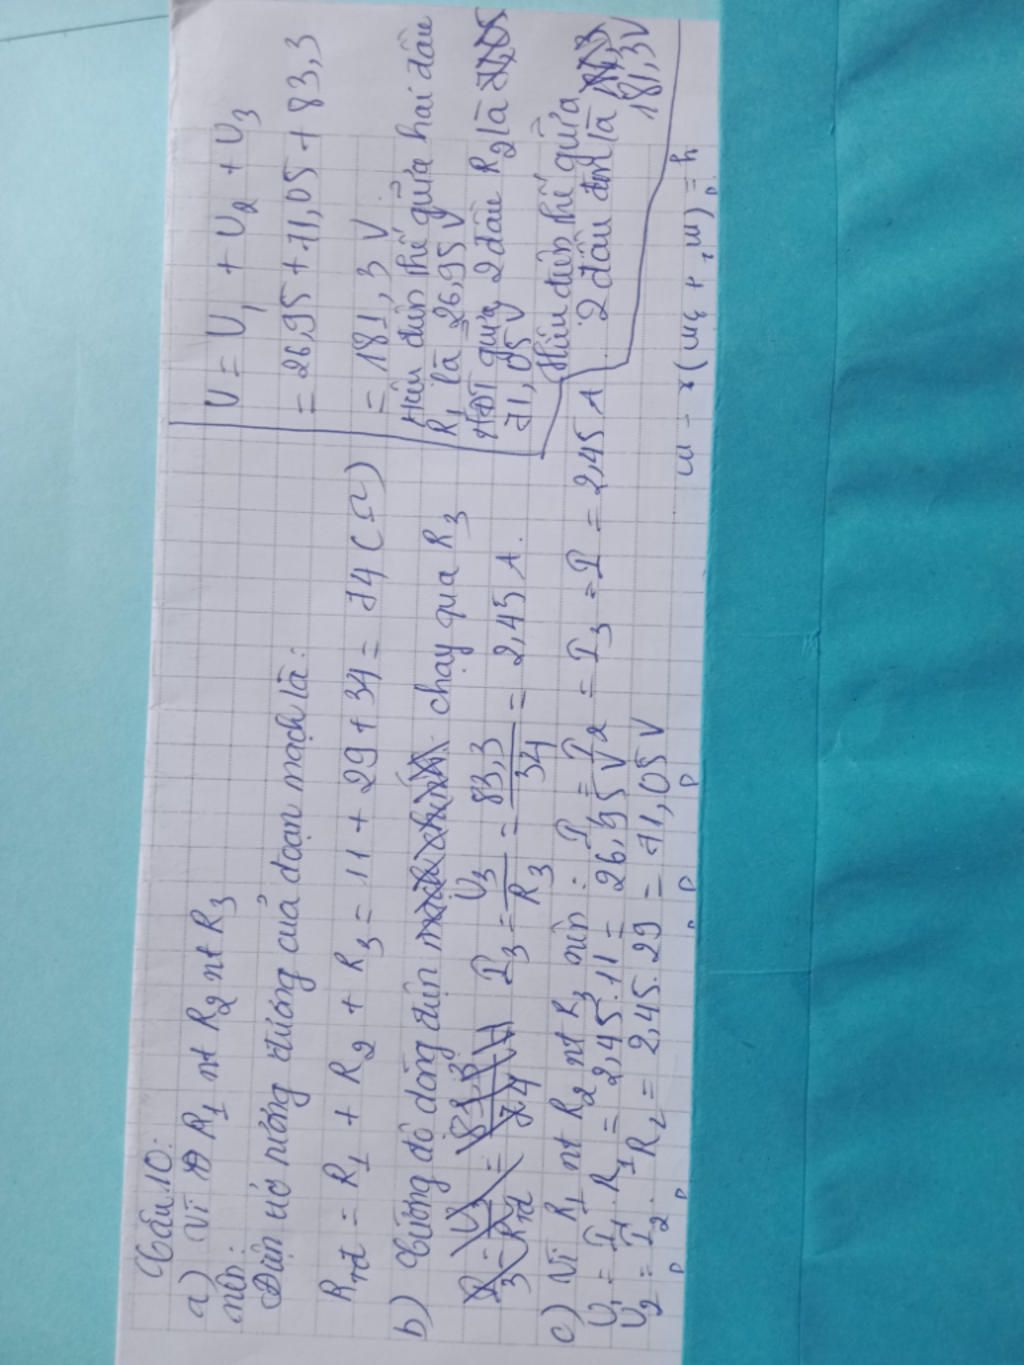 Câu 10:
a) Vì R1 nt R2 nt R3
nên:
Điện trở tương đương của đoạn mạch là:
Rtđ = R1 + R2 + R3 = 11 + 29 + 34 = 74 (Ω)
b) Cường độ dòng điện chạy qua R3
I3 = U3/R3 = 83,3/34 = 2,45 A.
c) Vì R1 nt R2 nt R3 nên: I1 = I2 = I3 = I = 2,45 A
U1 = I1 . R1 = 2,45.11 = 26,95 V
U2 = I2 . R2 = 2,45.29 = 71,05 V
U = U1 + U2 + U3
= 26,95 + 71,05 + 83,3
= 181,3 V
Hiệu điện thế giữa hai đầu
R1 là 26,95 V
HĐT giữa 2 đầu R2 là
71,05 V
Hiệu điện thế giữa
2 đầu đm là
181,3V